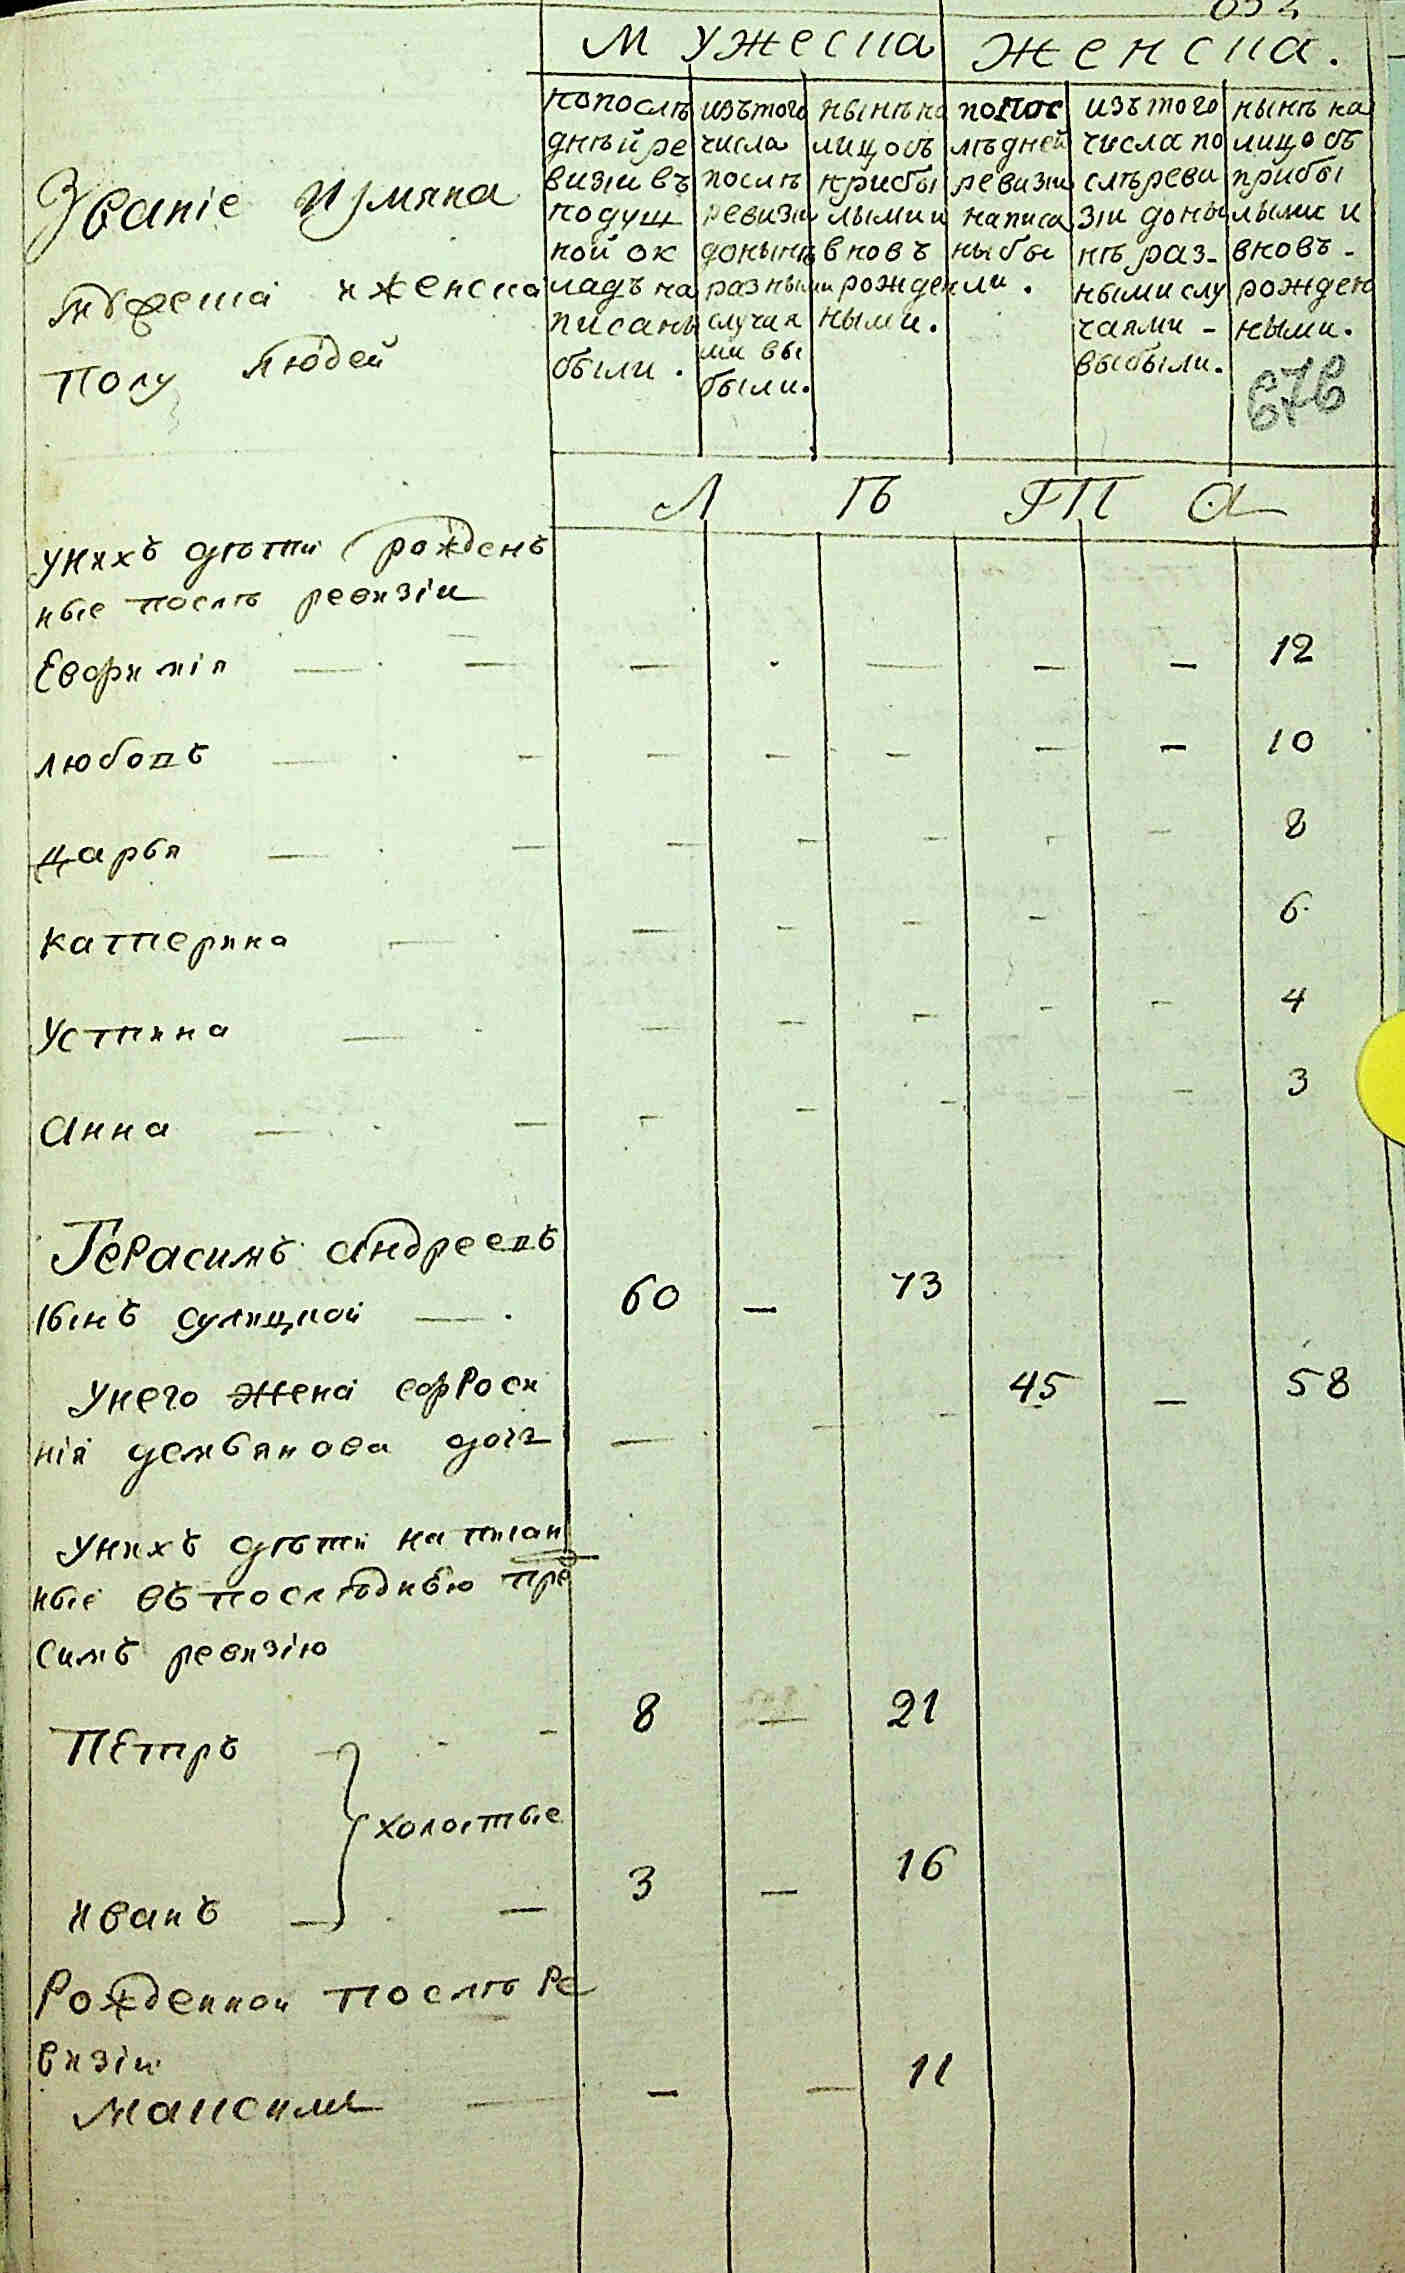 Мужеска Женска.
Званіе И имяна
мужеска и женска
полу людей
по послѣ
дней ре
визіи въ
подуш
ной ок
ладъ на
писаны
были.
изъ того
числа
послѣ
ревизіи
до нынѣ
разными
случая
ми вы
были.
нынѣ на
лицо съ
прибы
лыми и
вновъ
рожден
ными.
по пос
лѣдней
ревизіи
написа
ны бы
ли.
изъ того
числа по
слѣ реви
зіи до ны
нѣ раз-
ными слу
чаями -
выбыли.
нынѣ на
лицо съ
прибы
лыми и
вновъ -
рожден
ными.
676
Л Ѣ Т А
у нихъ дѣти рожден
ные послѣ ревизіи
Евфимія — — — — — — 12
любовь — — — — — — — 10
дарья — — — — — — — 8
катерина — — — — — — 6
устина — — — — — — 4
анна — — — — — — — 3
Герасимъ андреевъ
сынъ сулицкой — 60 — 73
у него жена ефроси 45 — 58
нія демьянова доч —
у нихъ дѣти написан
ные въ последнью пре
симъ ревизію
Петръ — 8 — 21
холостые
иванъ — 3 — 16
Рожденной послѣ ре
визіи
максимъ — — — 11